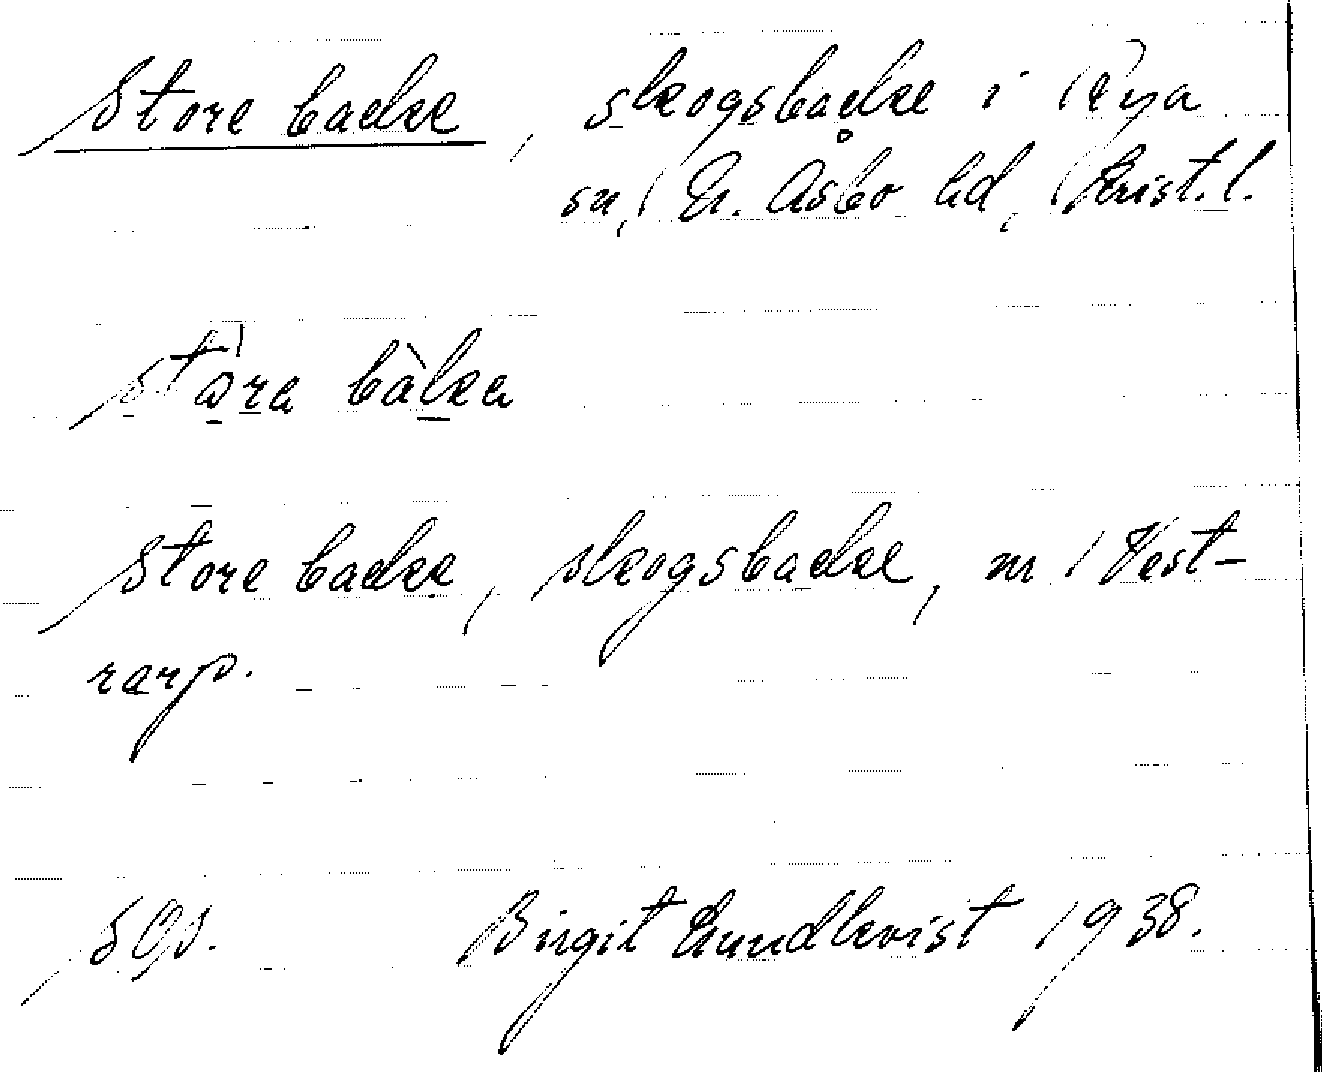 Store backe, skogsbacke i Rya
sn, N. Åsbo hd, Krist. l.
Store backe, skogsbacke, nr 1 Väst-
rarp.
SOD. Birgit Lundkvist 1938.